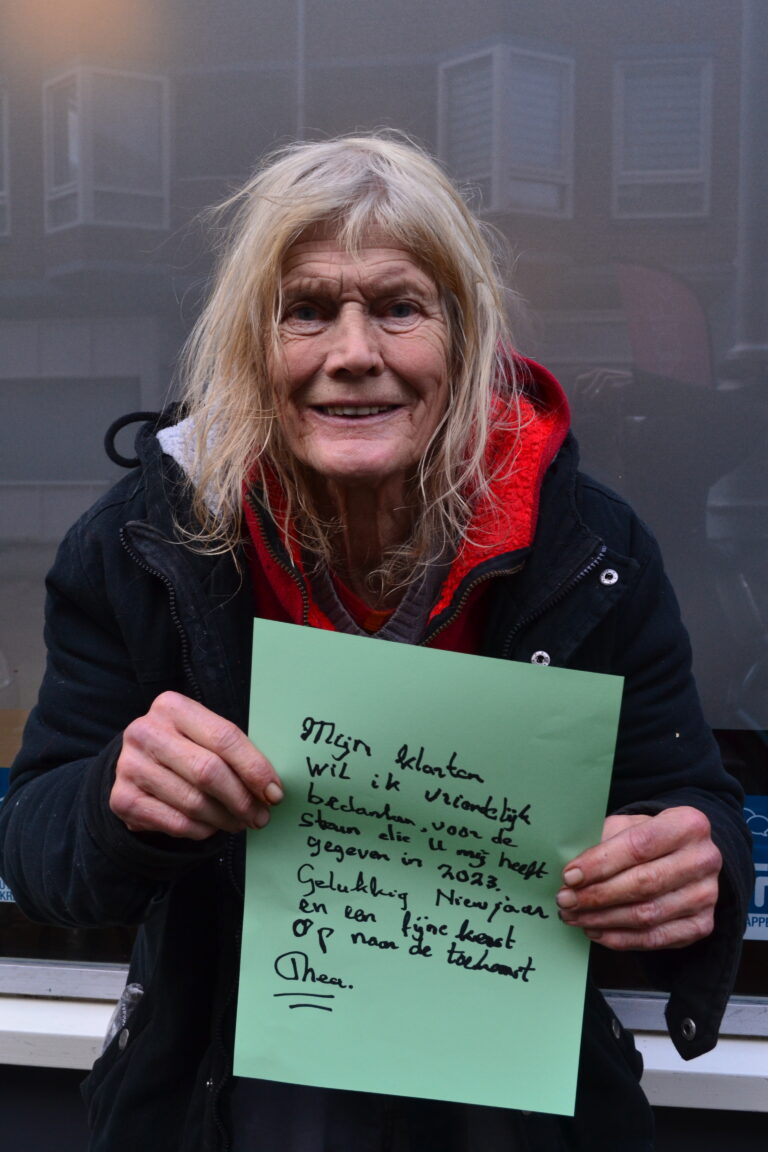 Mijn klanten
wil ik vriendelijk
bedanken, voor de
steun die u mij heeft
gegeven in 2023.
Gelukkig Nieuwjaar
en een fijne kerst
op naar de toekomst
Thea.